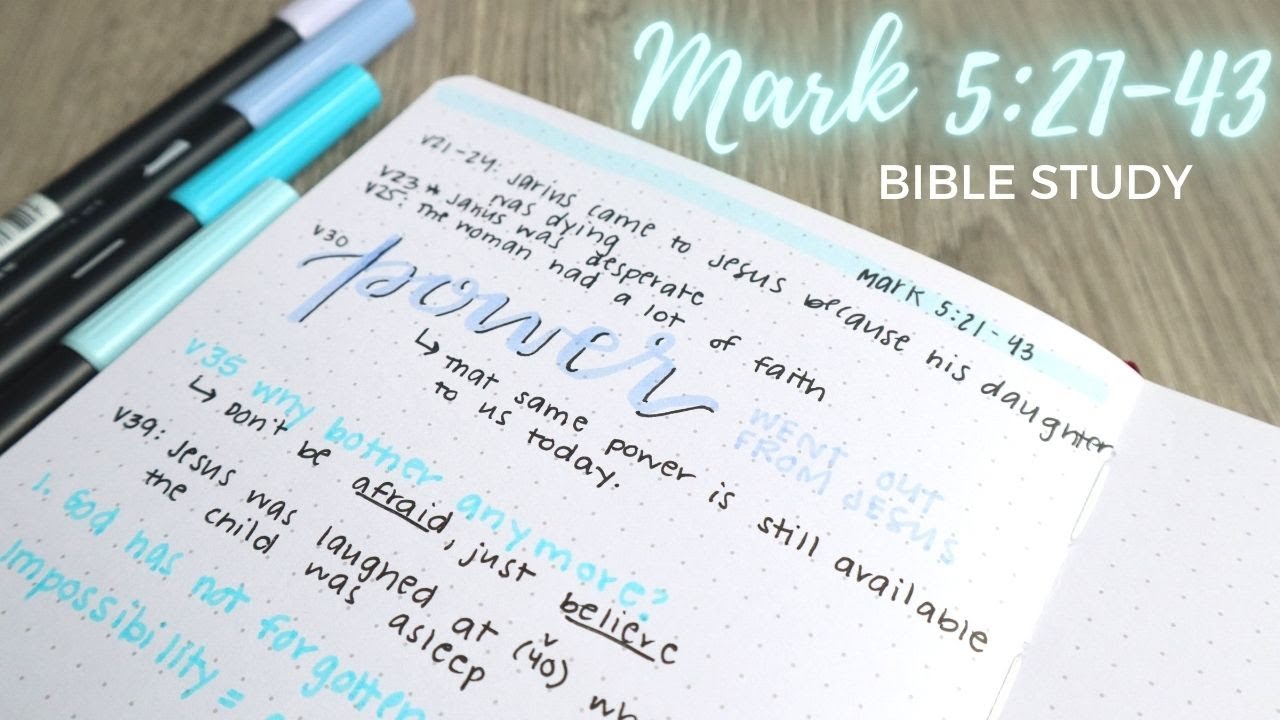 Mark 5:21-43
BIBLE STUDY
Mark 5:21-43
v21-24: Jarius came to Jesus because his daughter
was dying
v23 * Jarius was desperate
v25: The woman had a lot of faith
v30
power
WENT OUT
FROM JESUS
↳ That same power is still available
to us today.
v35 why bother anymore?
↳ Don't be afraid, just believe
v39: Jesus was laughed at (v40)
the child was asleep
1. God has not forgotten
Impossibility =